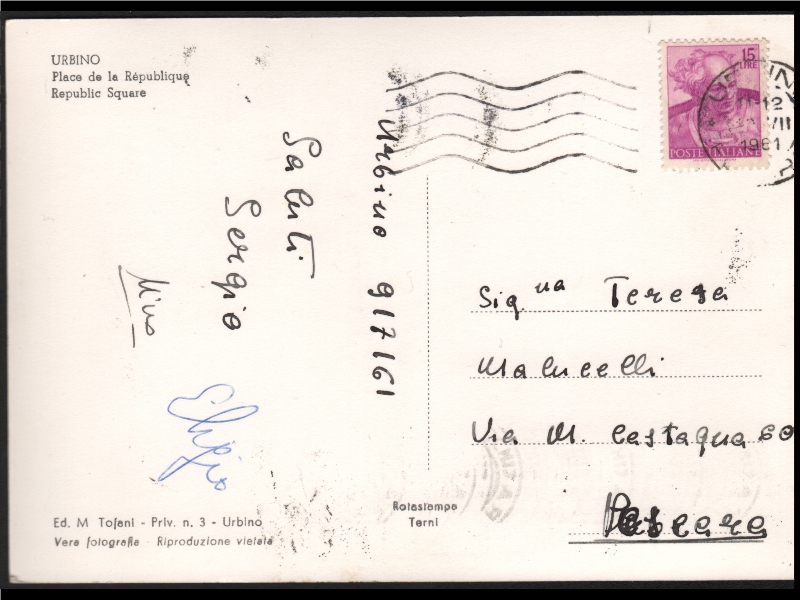 URBINO
Place de la République
Republic Square
Urbino 9/7/61
Saluti
Sergio
Ed. M Tofani - Priv. n. 3 - Urbino
Vera fotografia - Riproduzione vietata
Rotastampa
Terni
15
LIRE
POSTE ITALIANE
1961
Sig.na Teresa
Malucelli
Via M. Castagna 60
Pescara